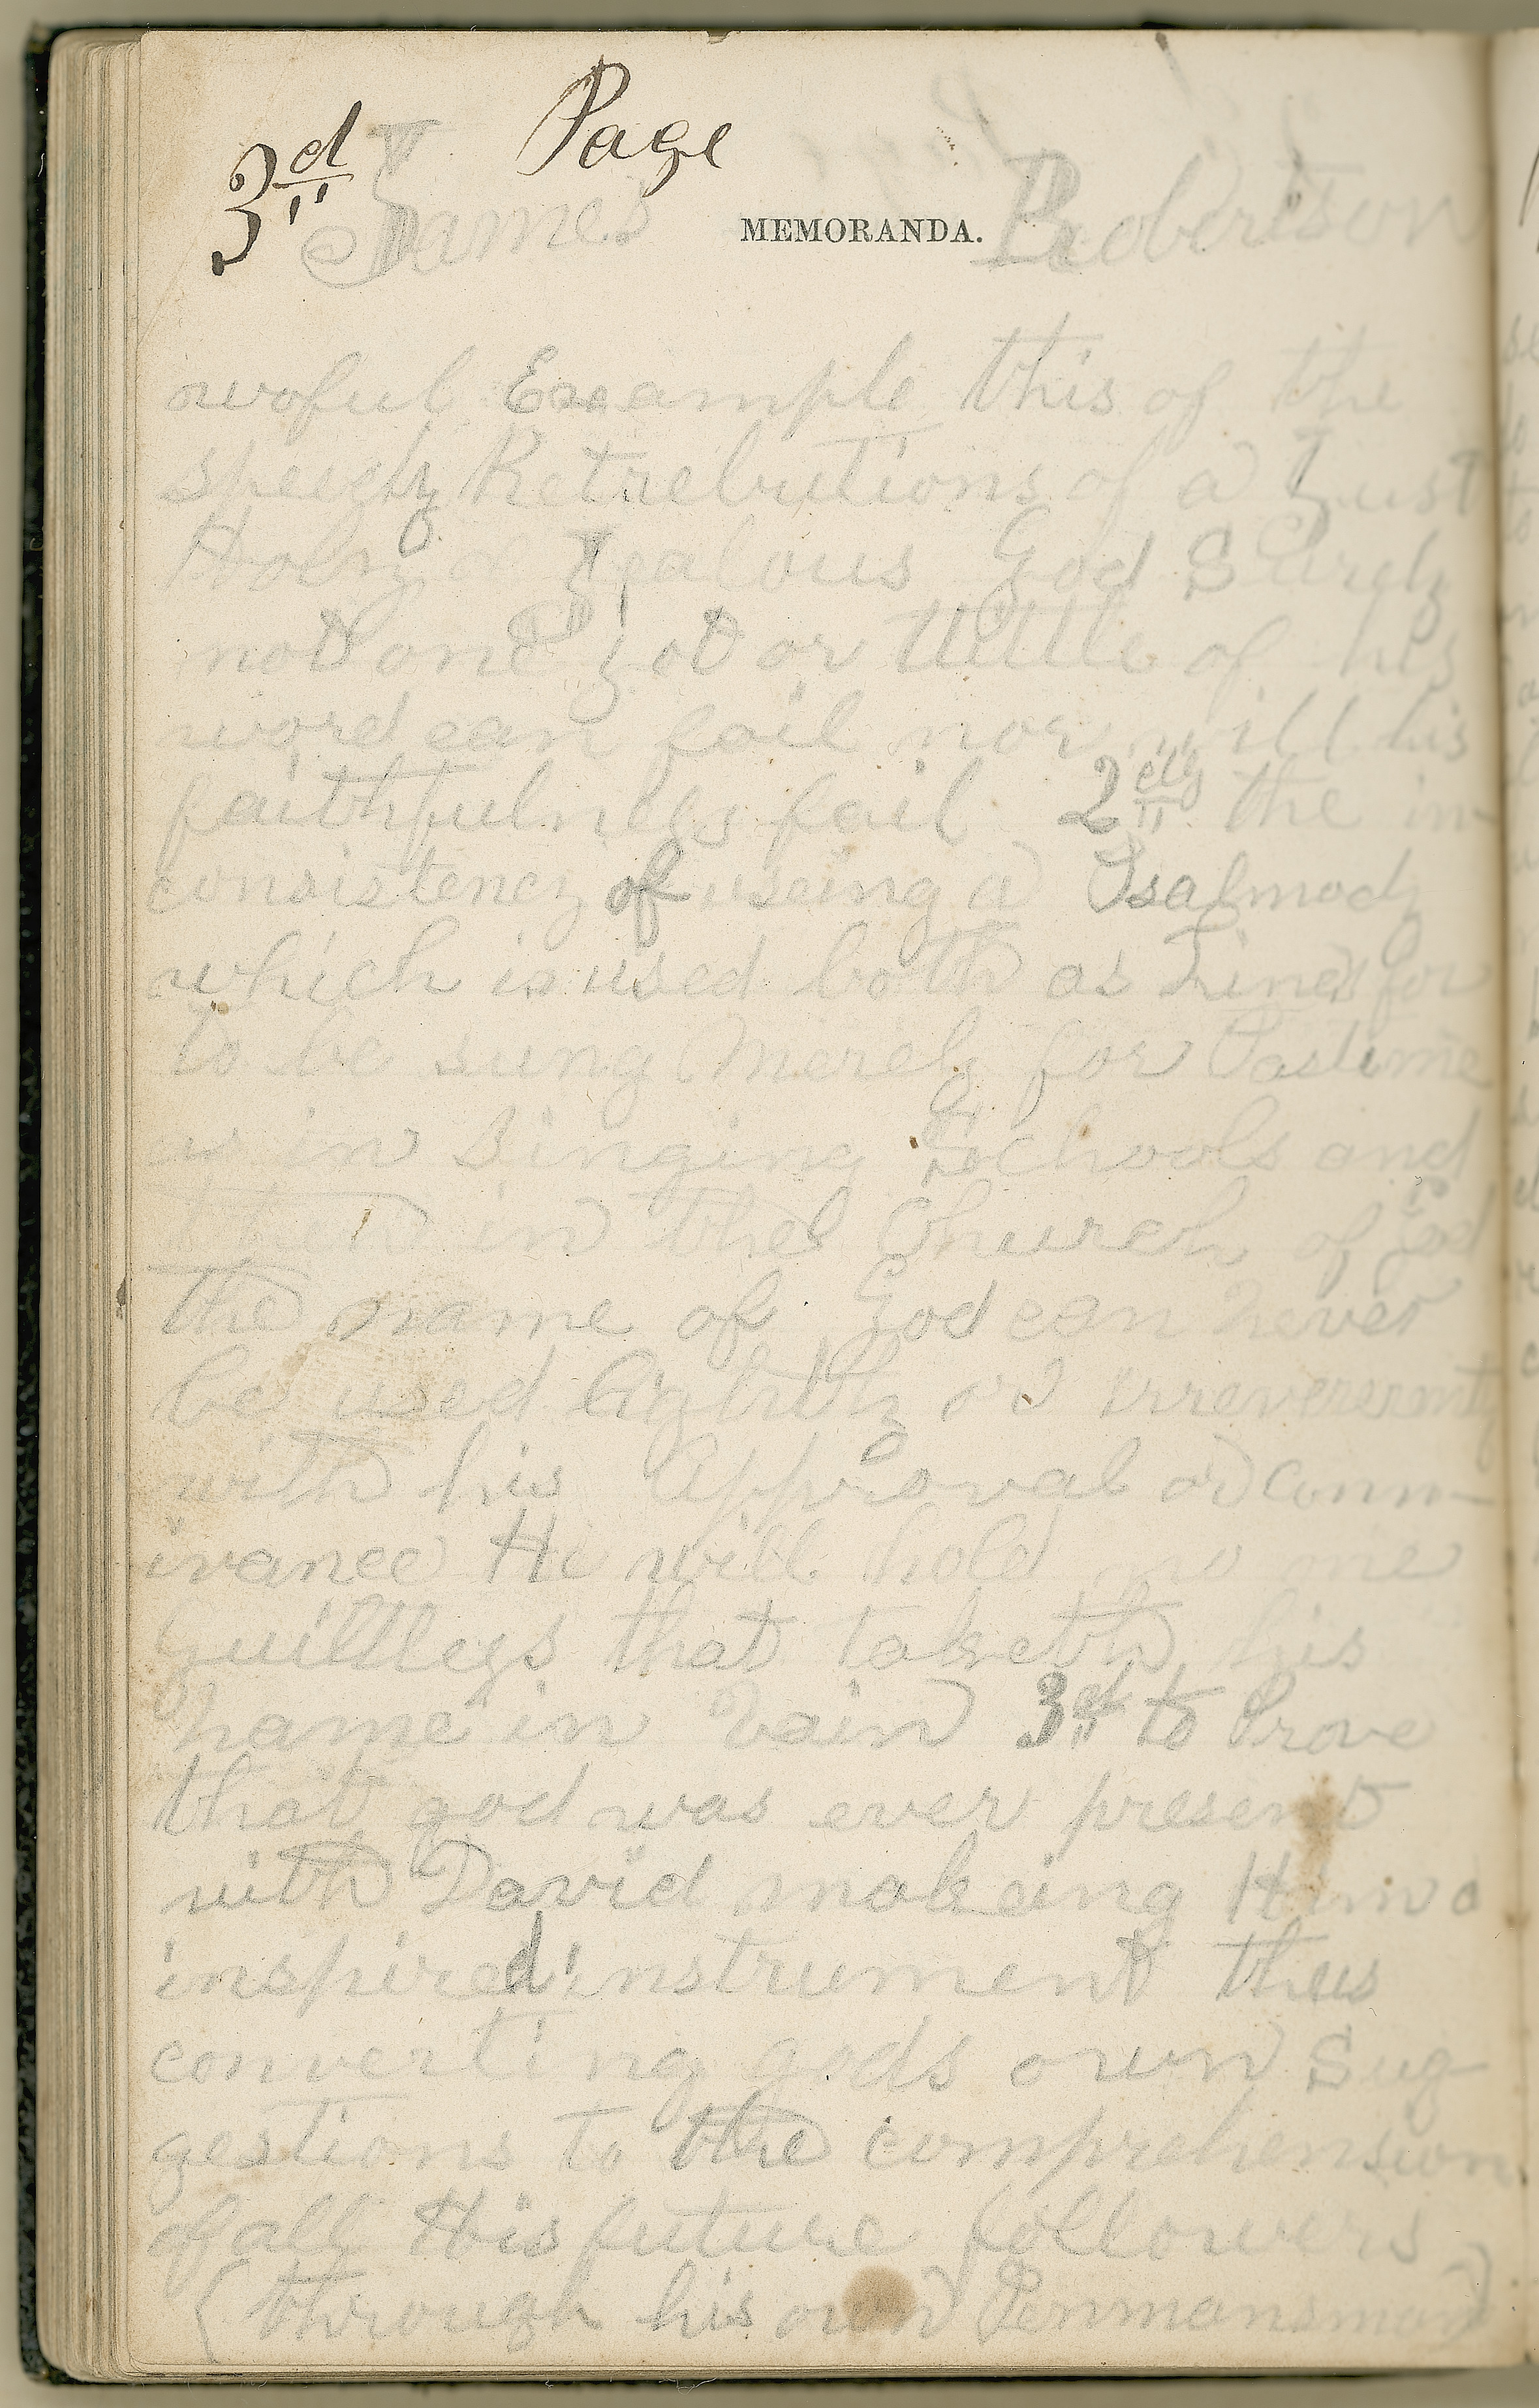 3d Page
James MEMORANDA. Robertson
woful Example this of the
speedy Retrebutions of a Just
Holy & Jealous God Surely
not one jot or tittle of his
word can fail nor will his
faithfulness fail 2dly the in-
consistency of useing a Psalmody
which is used both as Lines for
to be sung Merely for Pastime
as in Singing Schools and
then in the Church of God
the name of God can never
be used lightly or irreverently
with his Approval or conn-
ivance He will hold no one
guiltless that taketh his
name in Vain 3d to Prove
that god was ever present
with David makeing Him a
inspired instrument thus
converting gods own Sug-
gestions to the comprehension
of all His future followers
(through his own Penmansman)